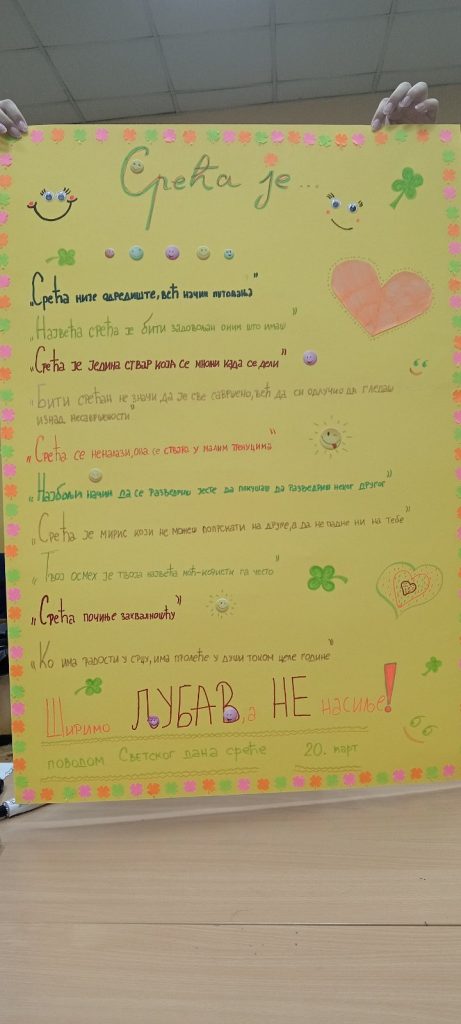 Срећа је...
„Срећа није одредиште, већ начин путовања"
„Највећа срећа је бити задовољан оним што имаш"
„Срећа је једина ствар која се множи када се дели"
„Бити срећан не значи да је све савршено, већ да си одлучио да гледаш
изнад несавршености"
„Срећа се не налази, она се ствара у малим тренуцима"
„Најбољи начин да се разведриш јесте да покушаш да разведриш неког другог"
„Срећа је мирис који не можеш попрскати на друге, а да не падне ни на тебе"
„Твој осмех је твоја највећа моћ-користи га често"
„Срећа почиње захвалношћу"
„Ко има радости у срцу, има пролеће у души током целе године"
Ширимо ЉУБАВ, а НЕ насиље!
поводом Светског дана среће 20. март